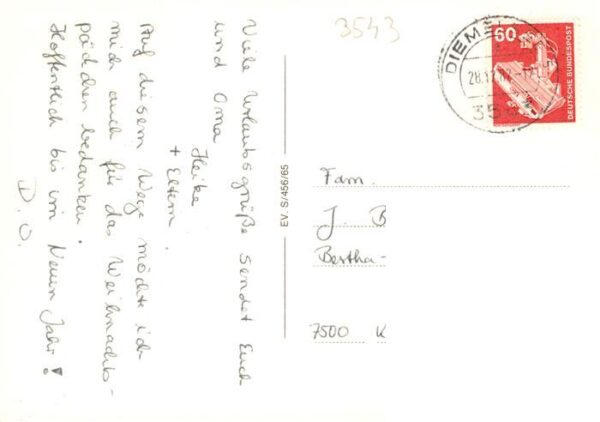 Viele Urlaubsgrüße sendet Euch
und Oma
Heike
+ Eltern.
Auf diesem Wege möchte ich
mich auch für das Weihnachts-
päckchen bedanken.
Hoffentlich bis im Neuen Jahr!
D. O.
EV. S/456/65
3543
60
DEUTSCHE BUNDESPOST
DIEM
28.12.
Fam.
J. B
Bertha-
7500 K